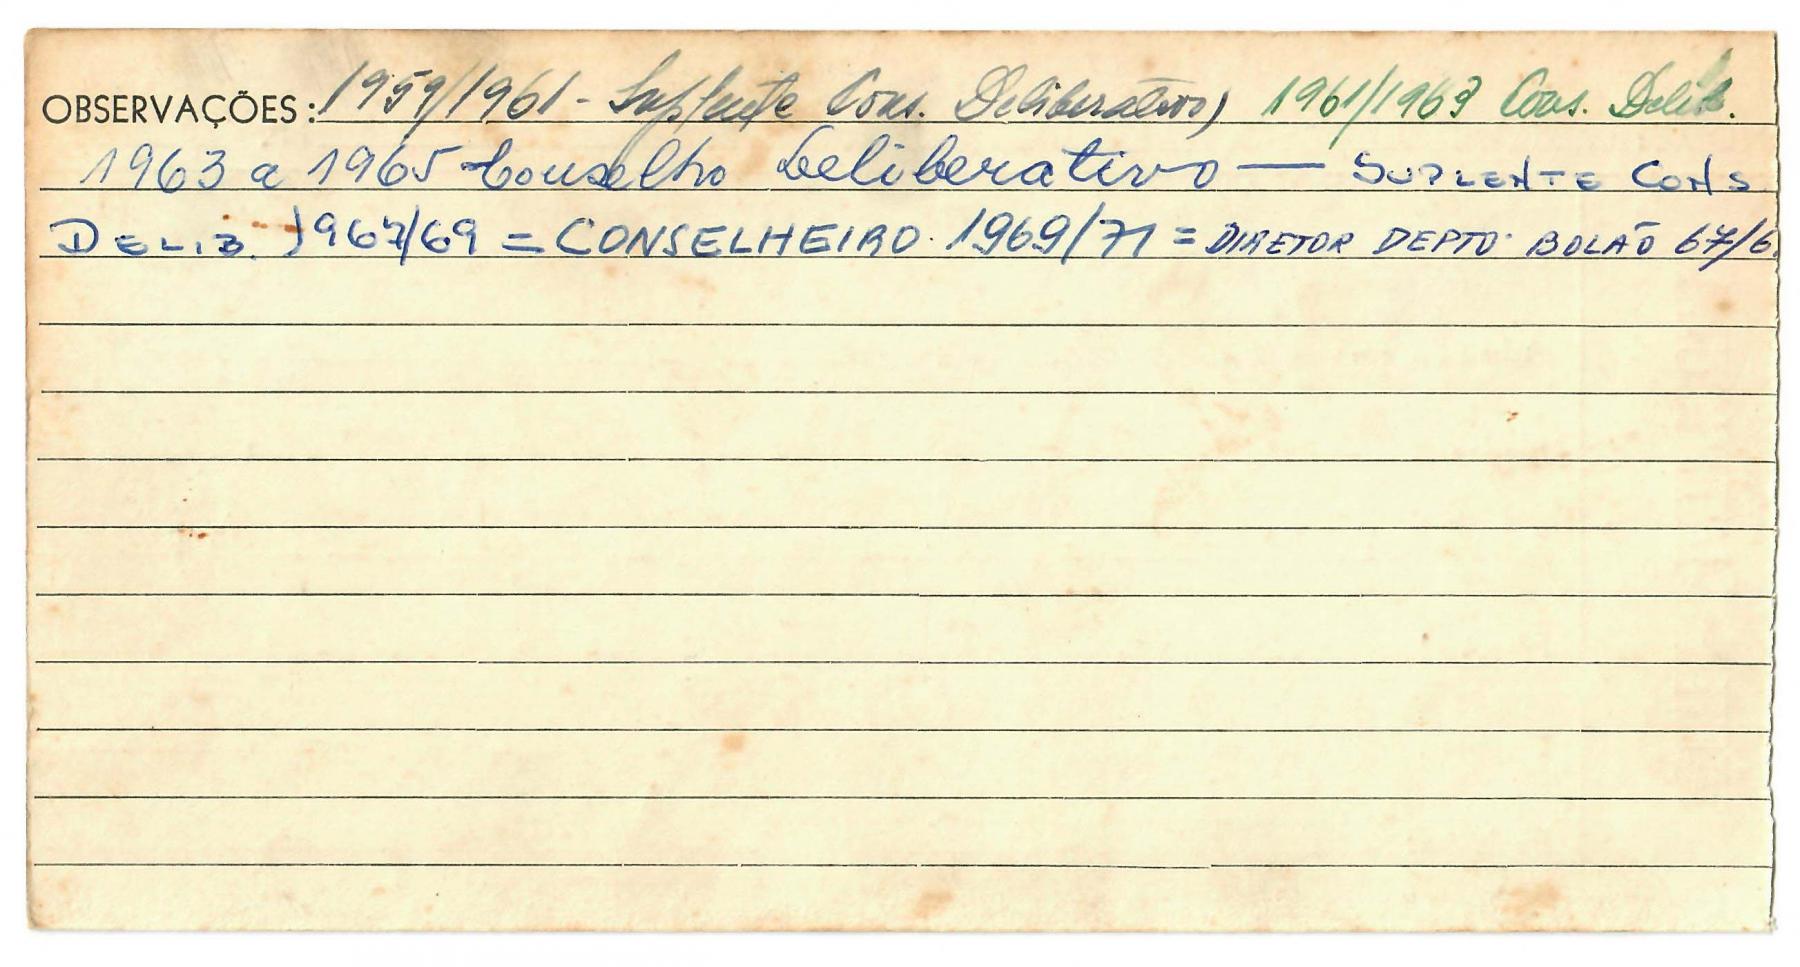 OBSERVAÇÕES: 1959/1961 - Suplente Cons. Deliberativo, 1961/1963 Cons. Delib.
1963 a 1965 Conselho Deliberativo — SUPLENTE CONS
DELIB. 1967/69 = CONSELHEIRO. 1969/71 = DIRETOR DEPTO. BOLÃO 67/6